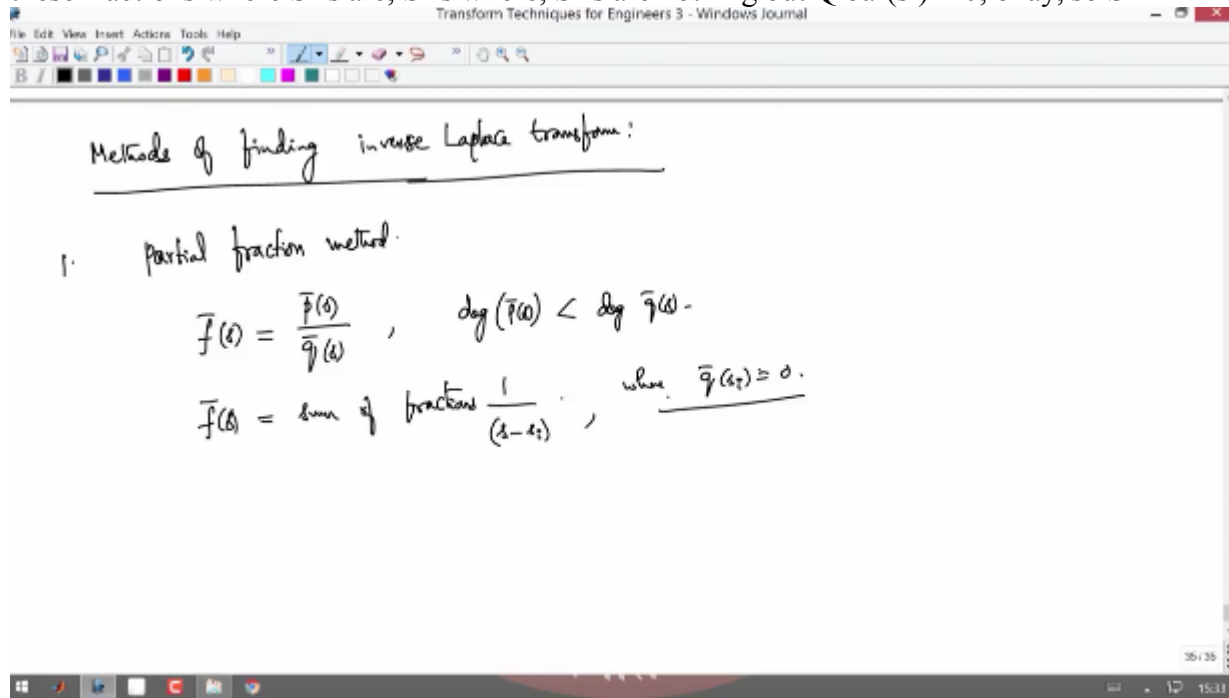 Transform Techniques for Engineers 3 - Windows Journal
File Edit View Insert Actions Tools Help
B I
Methods of finding inverse Laplace transform:
1. Partial fraction method.
f̄(s) = p̄(s) / q̄(s) , deg (p̄(s)) < deg q̄(s).
f̄(s) = sum of fractions 1 / (s-sᵢ) , where q̄(sᵢ) = 0.
35 / 35
15:33